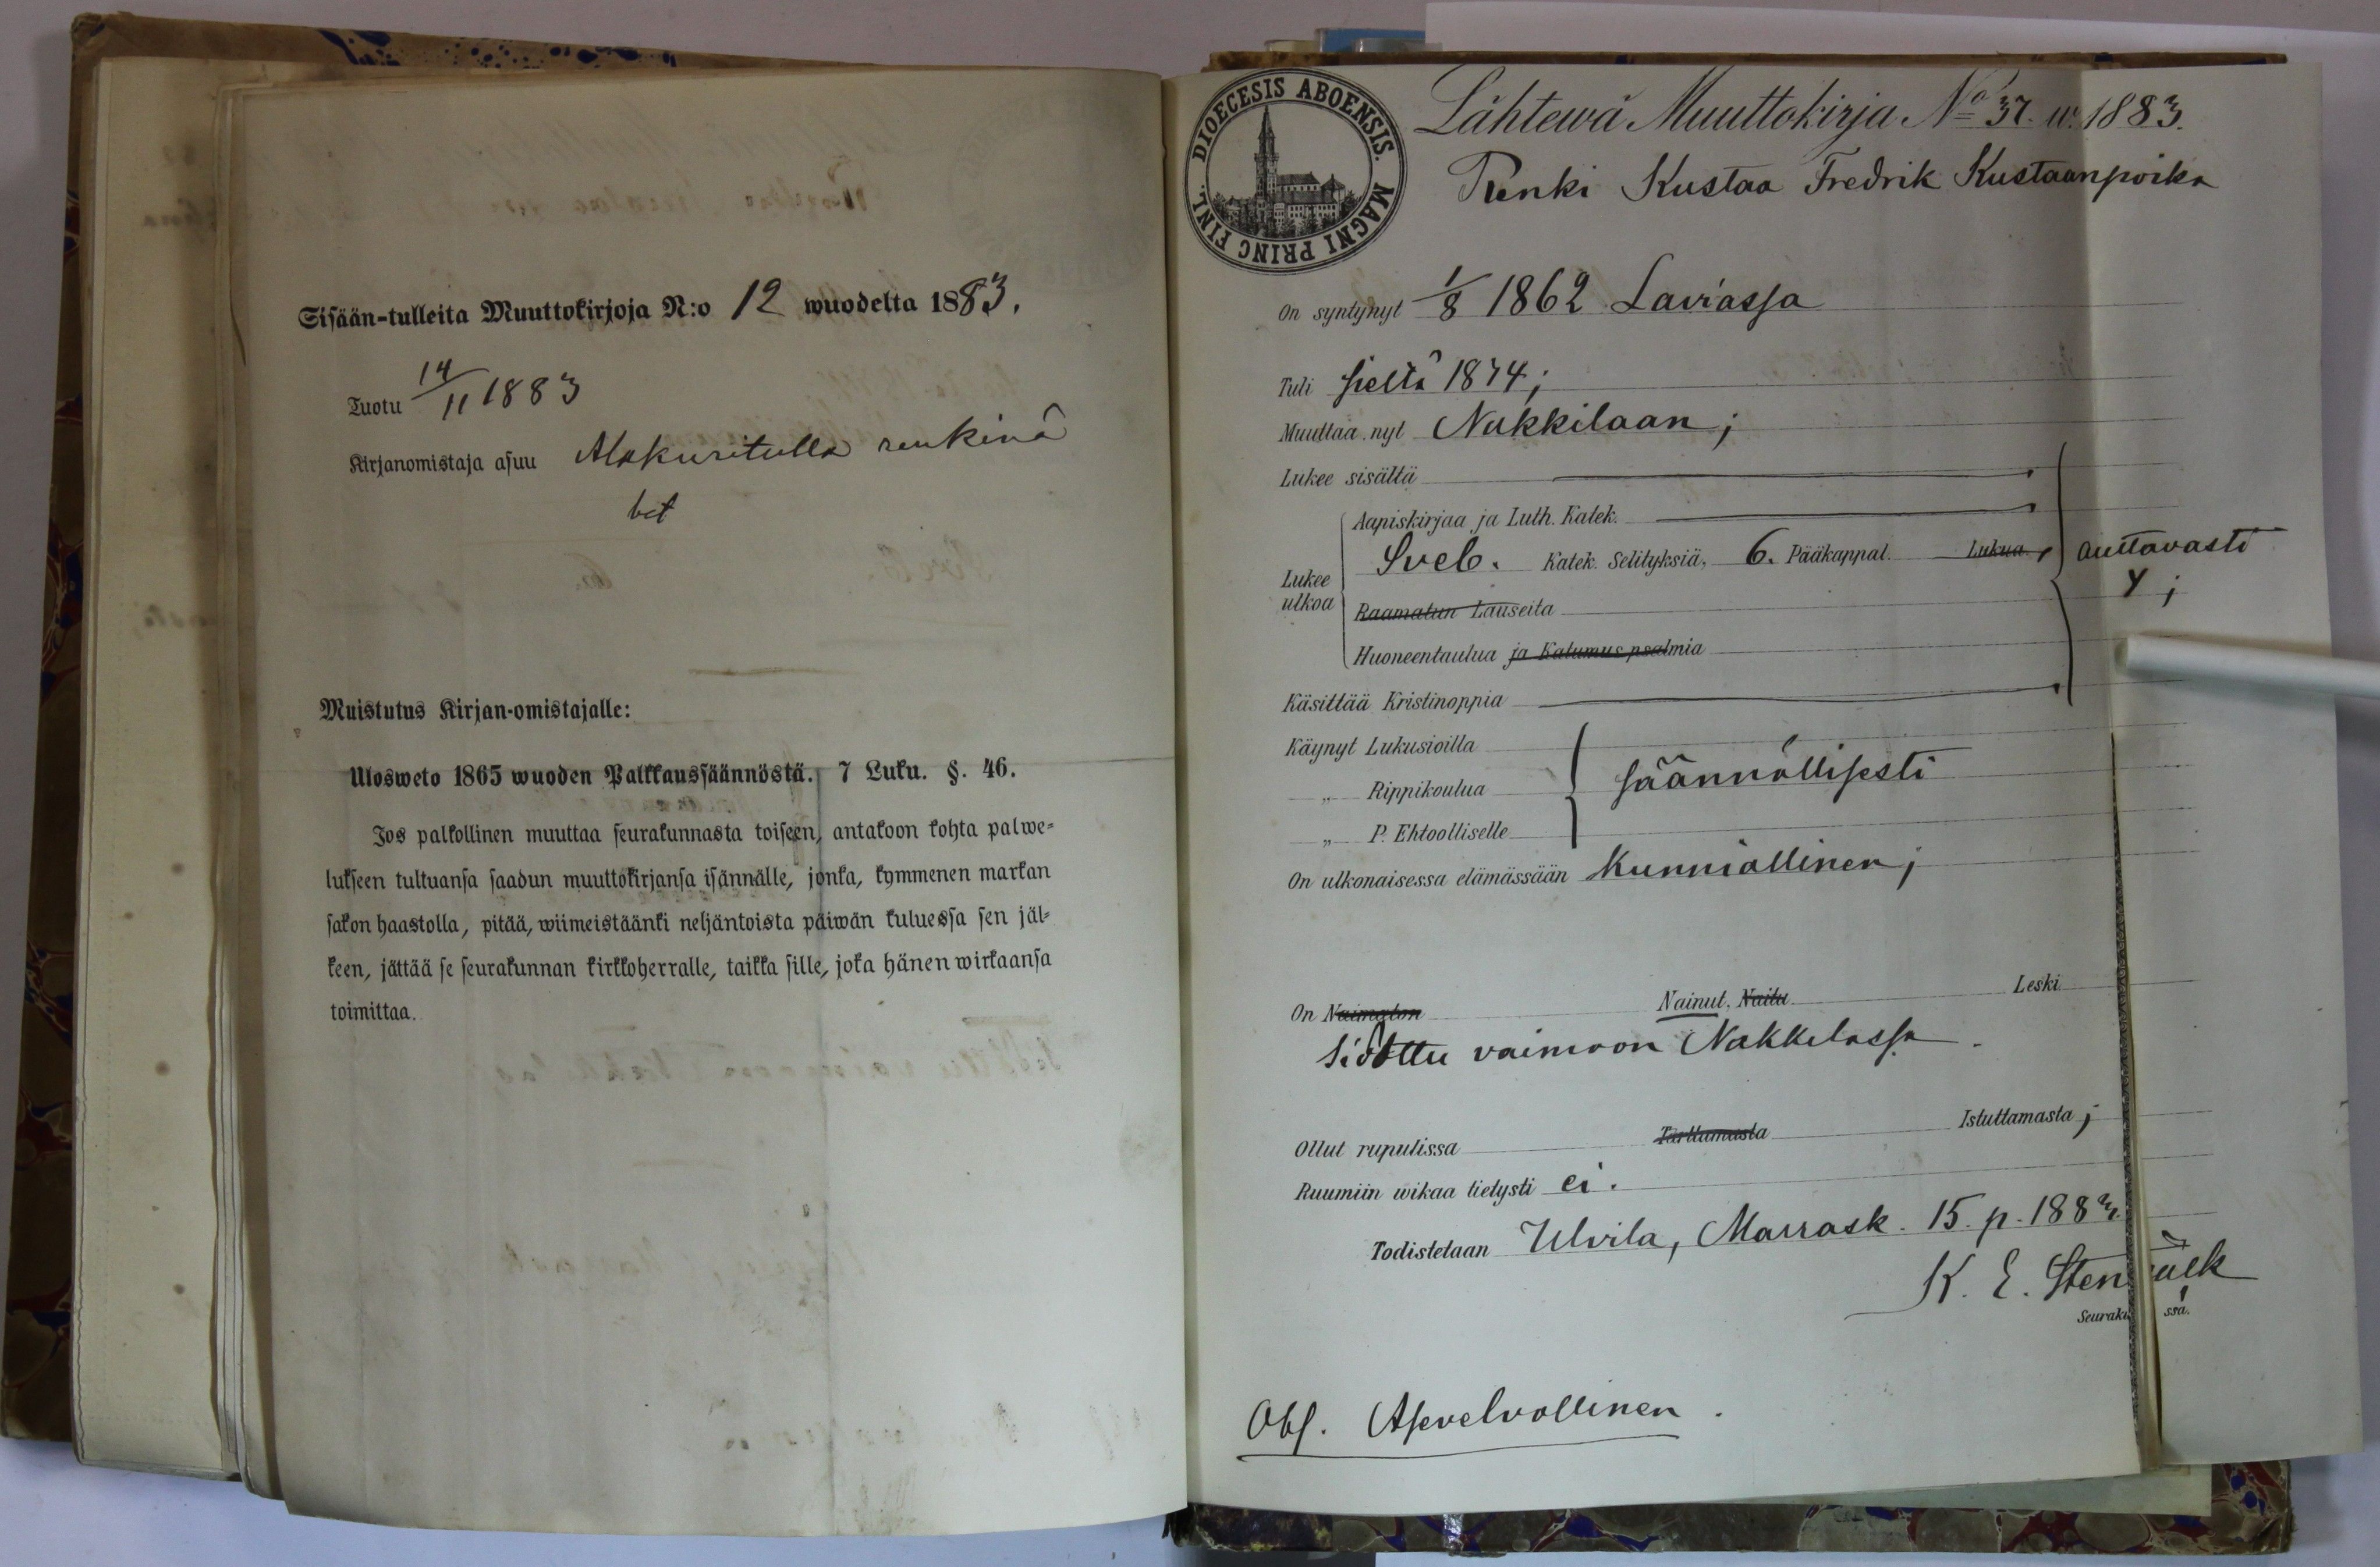 Sisään-tulleita Muuttokirjoja N:o 12 wuodelta 1883.
Tuotu 14/11 1883
Kirjanomistaja asuu Alakuritulla renkinä
bet
Muistutus Kirjan-omistajalle:
Ulosweto 1865 wuoden Palkkaussäännöstä. 7 Luku. §. 46.
Jos palkollinen muuttaa seurakunnasta toiseen, antakoon kohta palwe-
lukseen tultuansa saadun muuttokirjansa isännälle, jonka, kymmenen markan
sakon haastolla, pitää, wiimeistäänki neljäntoista päiwän kuluessa sen jäl-
keen, jättää se seurakunnan kirkkoherralle, taikka sille, joka hänen wirkaansa
toimittaa.
DIOECESIS ABOENSIS. MAGNI PRINC FINL.
Lähtewä Muuttokirja No 37. w. 1883.
Renki Kustaa Fredrik Kustaanpoika
On syntynyt 1/8 1862 Laviassa
Tuli sieltä 1874;
Muuttaa nyt Nakkilaan;
Lukee sisältä
Aapiskirjaa ja Luth. Katek.
Lukee ulkoa
Sveb. Katek. Selityksiä, 6. Pääkappal. Lukua auttavasti
Raamatun Lauseita
Huoneentaulua ja Katumus psalmia
Käsittää Kristinoppia
Käynyt Lukusioilla
„ Rippikoulua säännöllisesti
„ P. Ehtoolliselle
On ulkonaisessa elämässään kunniallinen;
On Naimaton Nainut. Naitu Leski
sidottu vaimoon Nakkilassa.
Ollut rupulissa Tarttumasta Istuttamasta;
Ruumiin wikaa tietysti ei.
Todistetaan Ulvila, Marrask. 15. p. 1883.
K. E. Sten
Seuraku ssa.
Obs. Asevelvollinen.